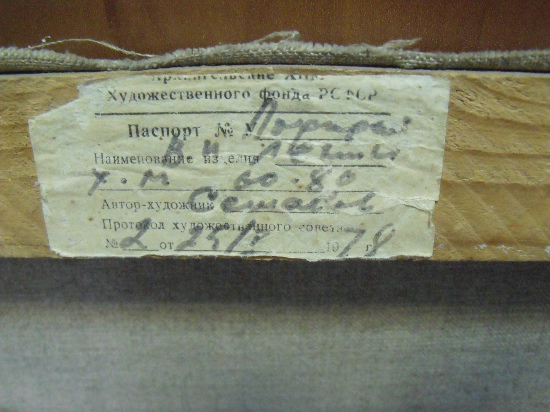 Архангельские ХПМ
Художественного фонда РСФСР
Паспорт № Портрет
Наименование изделия В И Ленина
х. м 60-80
Автор-художник
Протокол художественного совета
№ 2 от 25/I 1978 г.